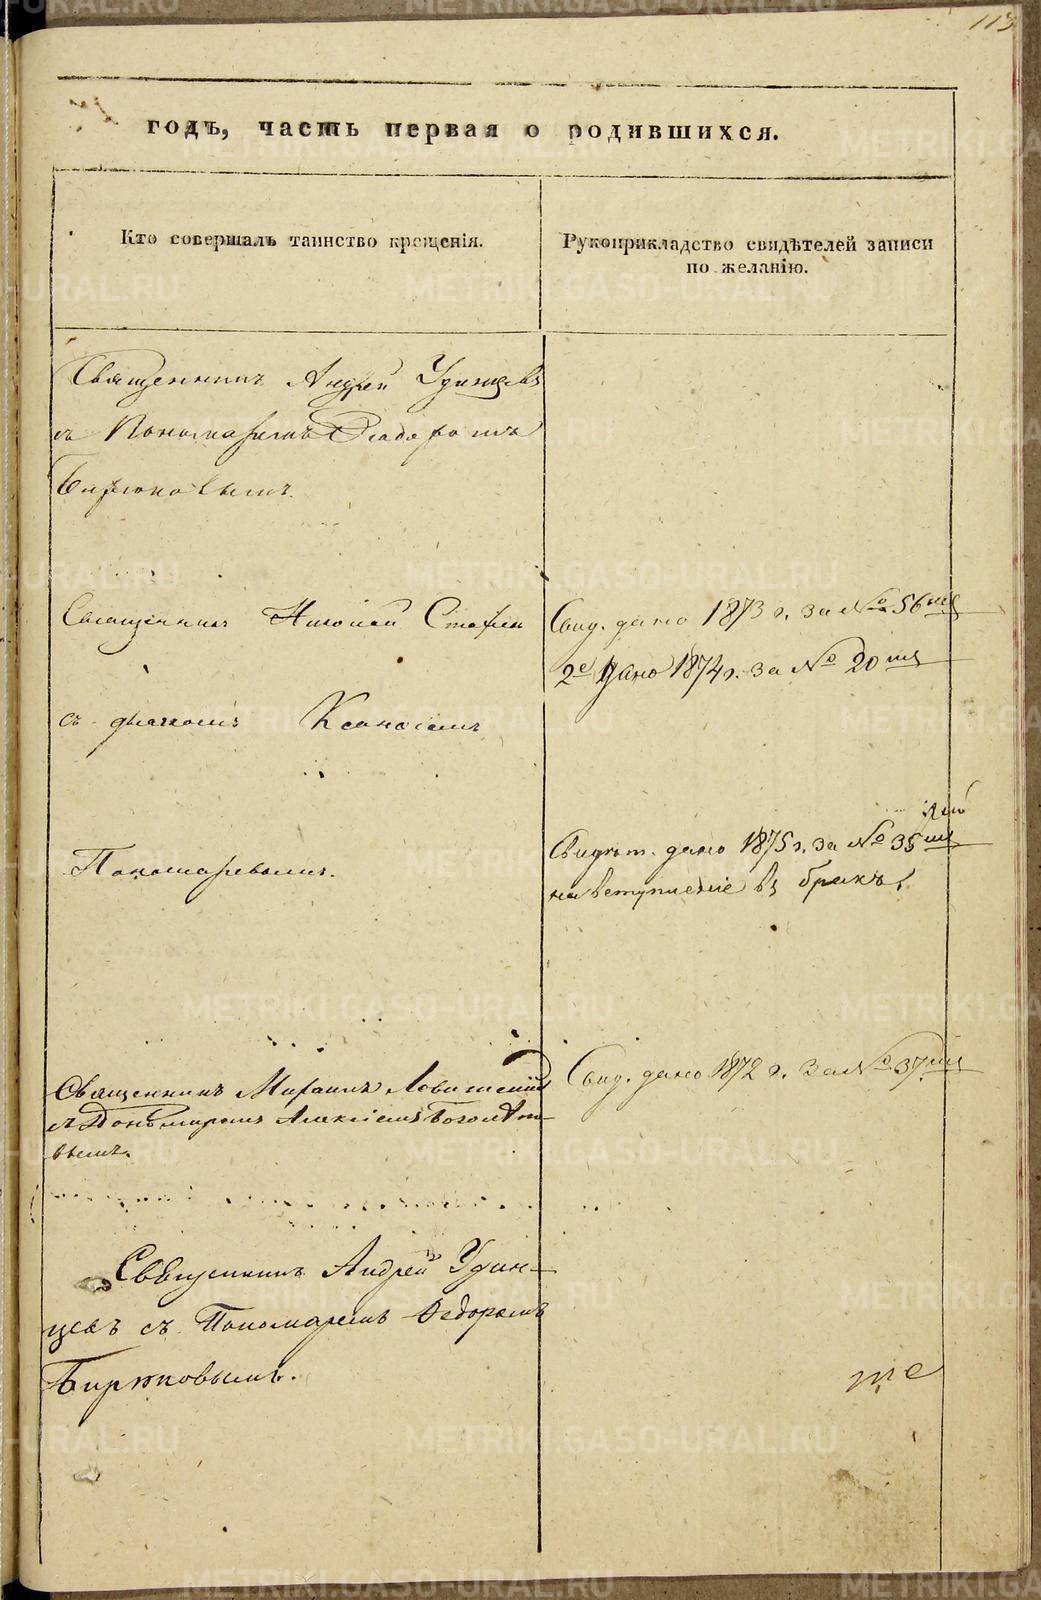 113
годъ, часть первая о родившихся.
Кто совершалъ таинство крещенія.
Рукоприкладство свидѣтелей записи
по желанію.
Священникъ Андрей Удинцевъ
съ Пономаремъ Феодоромъ
Бирюковымъ.
Священникъ Николай Стефан
съ дьячкомъ
Пономаревымъ.
Свид. дано 1873 г. за № 56мъ
2е дано 1874 г. за № 20мъ
Свидѣт. дано 1875 г. за № 35мъ
на вступленіе въ бракъ.
Священникъ Михаилъ
съ Пономаремъ Алексіемъ Боголѣп-
вымъ.
Свид. дано 1872 г. За № 37мъ
Священникъ Андрей Удин-
цевъ съ Пономаремъ Федоромъ
Бирюковымъ.
METRIKI.GASO-URAL.RU